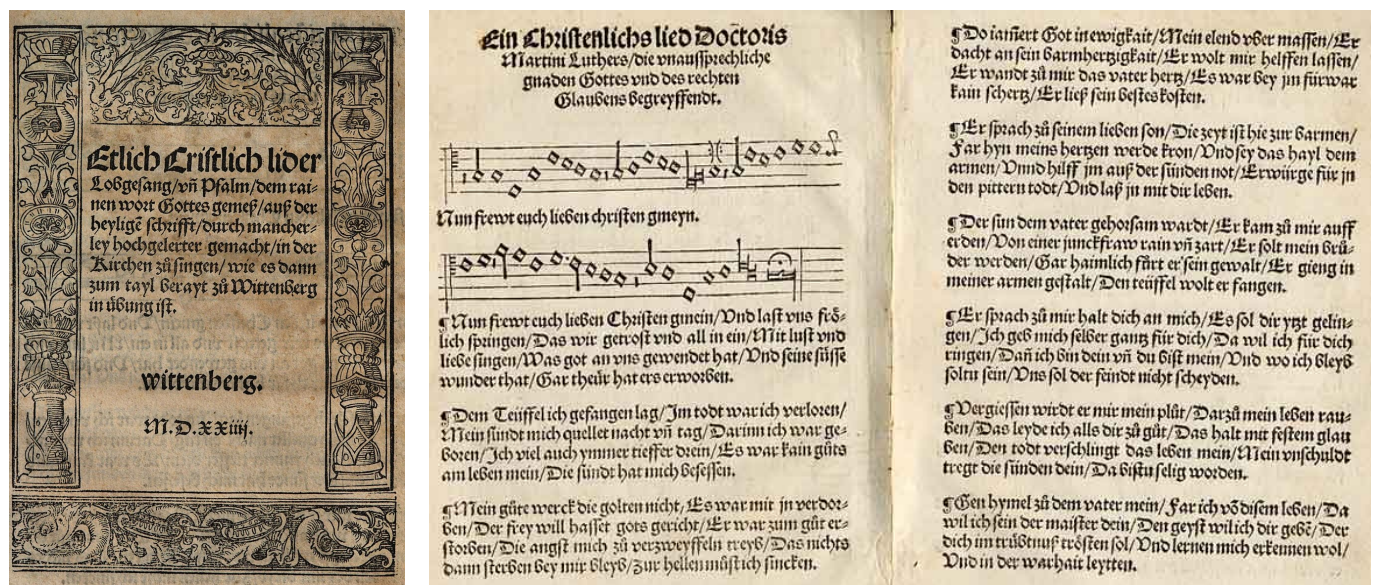 Etlich Cristlich lider
Lobgesang/vñ Psalm/dem rai-
nen wort Gottes gemeß/auß der
heyligẽ schrifft/durch mancher-
ley hochgelerter gemacht/in der
Kirchen zů singen/wie es dann
zum tayl berayt zů Wittenberg
in übung ist.
wittenberg.
M.D.XXiiij.
Ein Christenlichs lied Doctoris
Martini Luthers/die vnaussprechliche
gnaden Gottes vnd des rechten
Glaubens begreyffendt.
Nun frewt euch lieben christen gmeyn.
¶Nun frewt euch lieben Christen gmein/Vnd last vns frö-
lich springen/Das wir getrost vnd all in ein/Mit lust vnd
liebe singen/Was got an vns gewendet hat/Vnd seine süsse
wunder that/Gar theür hat ers erworben.
¶Dem Teüffel ich gefangen lag/Im todt war ich verloren/
Mein sündt mich quellet nacht vñ tag/Darinn ich war ge-
boren/Ich viel auch ymmer tieffer drein/Es war kain gůts
am leben mein/Die sündt hat mich besessen.
¶Mein gůte werck die golten nicht/Es war mit jn verdor-
ben/Der frey will hasset gots gericht/Er war zum gůt er-
storben/Die angst mich zů verzweyffeln treyb/Das nichts
dann sterben bey mir bleyb/Zur hellen můst ich sincken.
¶Do iam̃ert Got in ewigkait/Mein elend vber massen/Er
dacht an sein barmhertzigkait/Er wolt mir helffen lassen/
Er wandt zů mir das vater hertz/Es war bey jm fürwar
kain schertz/Er ließ sein bestes kosten.
¶Er sprach zů seinem lieben son/Die zeyt ist hie zur barmen/
Far hyn meins hertzen werde kron/Vnd sey das hayl dem
armen/Vnnd hilff jm auß der sünden not/Erwürge für jn
den pittern todt/Vnd laß jn mit dir leben.
¶Der sun dem vater gehorsam wardt/Er kam zů mir auff
erden/Von einer junckfraw rain vñ zart/Er solt mein brů-
der werden/Gar haimlich fürt er sein gewalt/Er gieng in
meiner armen gestalt/Den teüffel wolt er fangen.
¶Er sprach zů mir halt dich an mich/Es sol dir ytzt gelin-
gen/Ich geb mich selber gantz für dich/Da wil ich für dich
ringen/Dañ ich bin dein vñ du bist mein/Vnd wo ich bleyb
soltu sein/Vns sol der feindt nicht scheyden.
¶Vergiessen wirdt er mir mein plůt/Darzů mein leben rau-
ben/Das leyde ich alls dir zů gůt/Das halt mit festem glau
ben/Den todt verschlingt das leben mein/Mein vnschuldt
tregt die sünden dein/Da bistu selig worden.
¶Gen hymel zů dem vater mein/Far ich võ disem leben/Da
wil ich sein der maister dein/Den geyst wil ich dir gebẽ/Der
dich im trůbtnuß trösten sol/Vnd lernen mich erkennen wol/
Vnd in der warhait leytten.